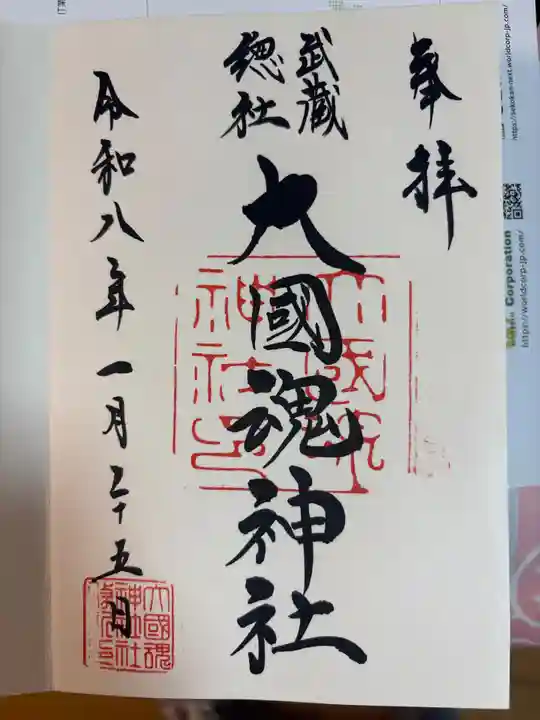 奉拝
武蔵
総社
大國魂神社
令和八年一月二十五日
大國魂
神社
大國魂
神社
https://sekokan-next.worldcorp-jp.com/
Corporation
https://worldcorp-jp.com/